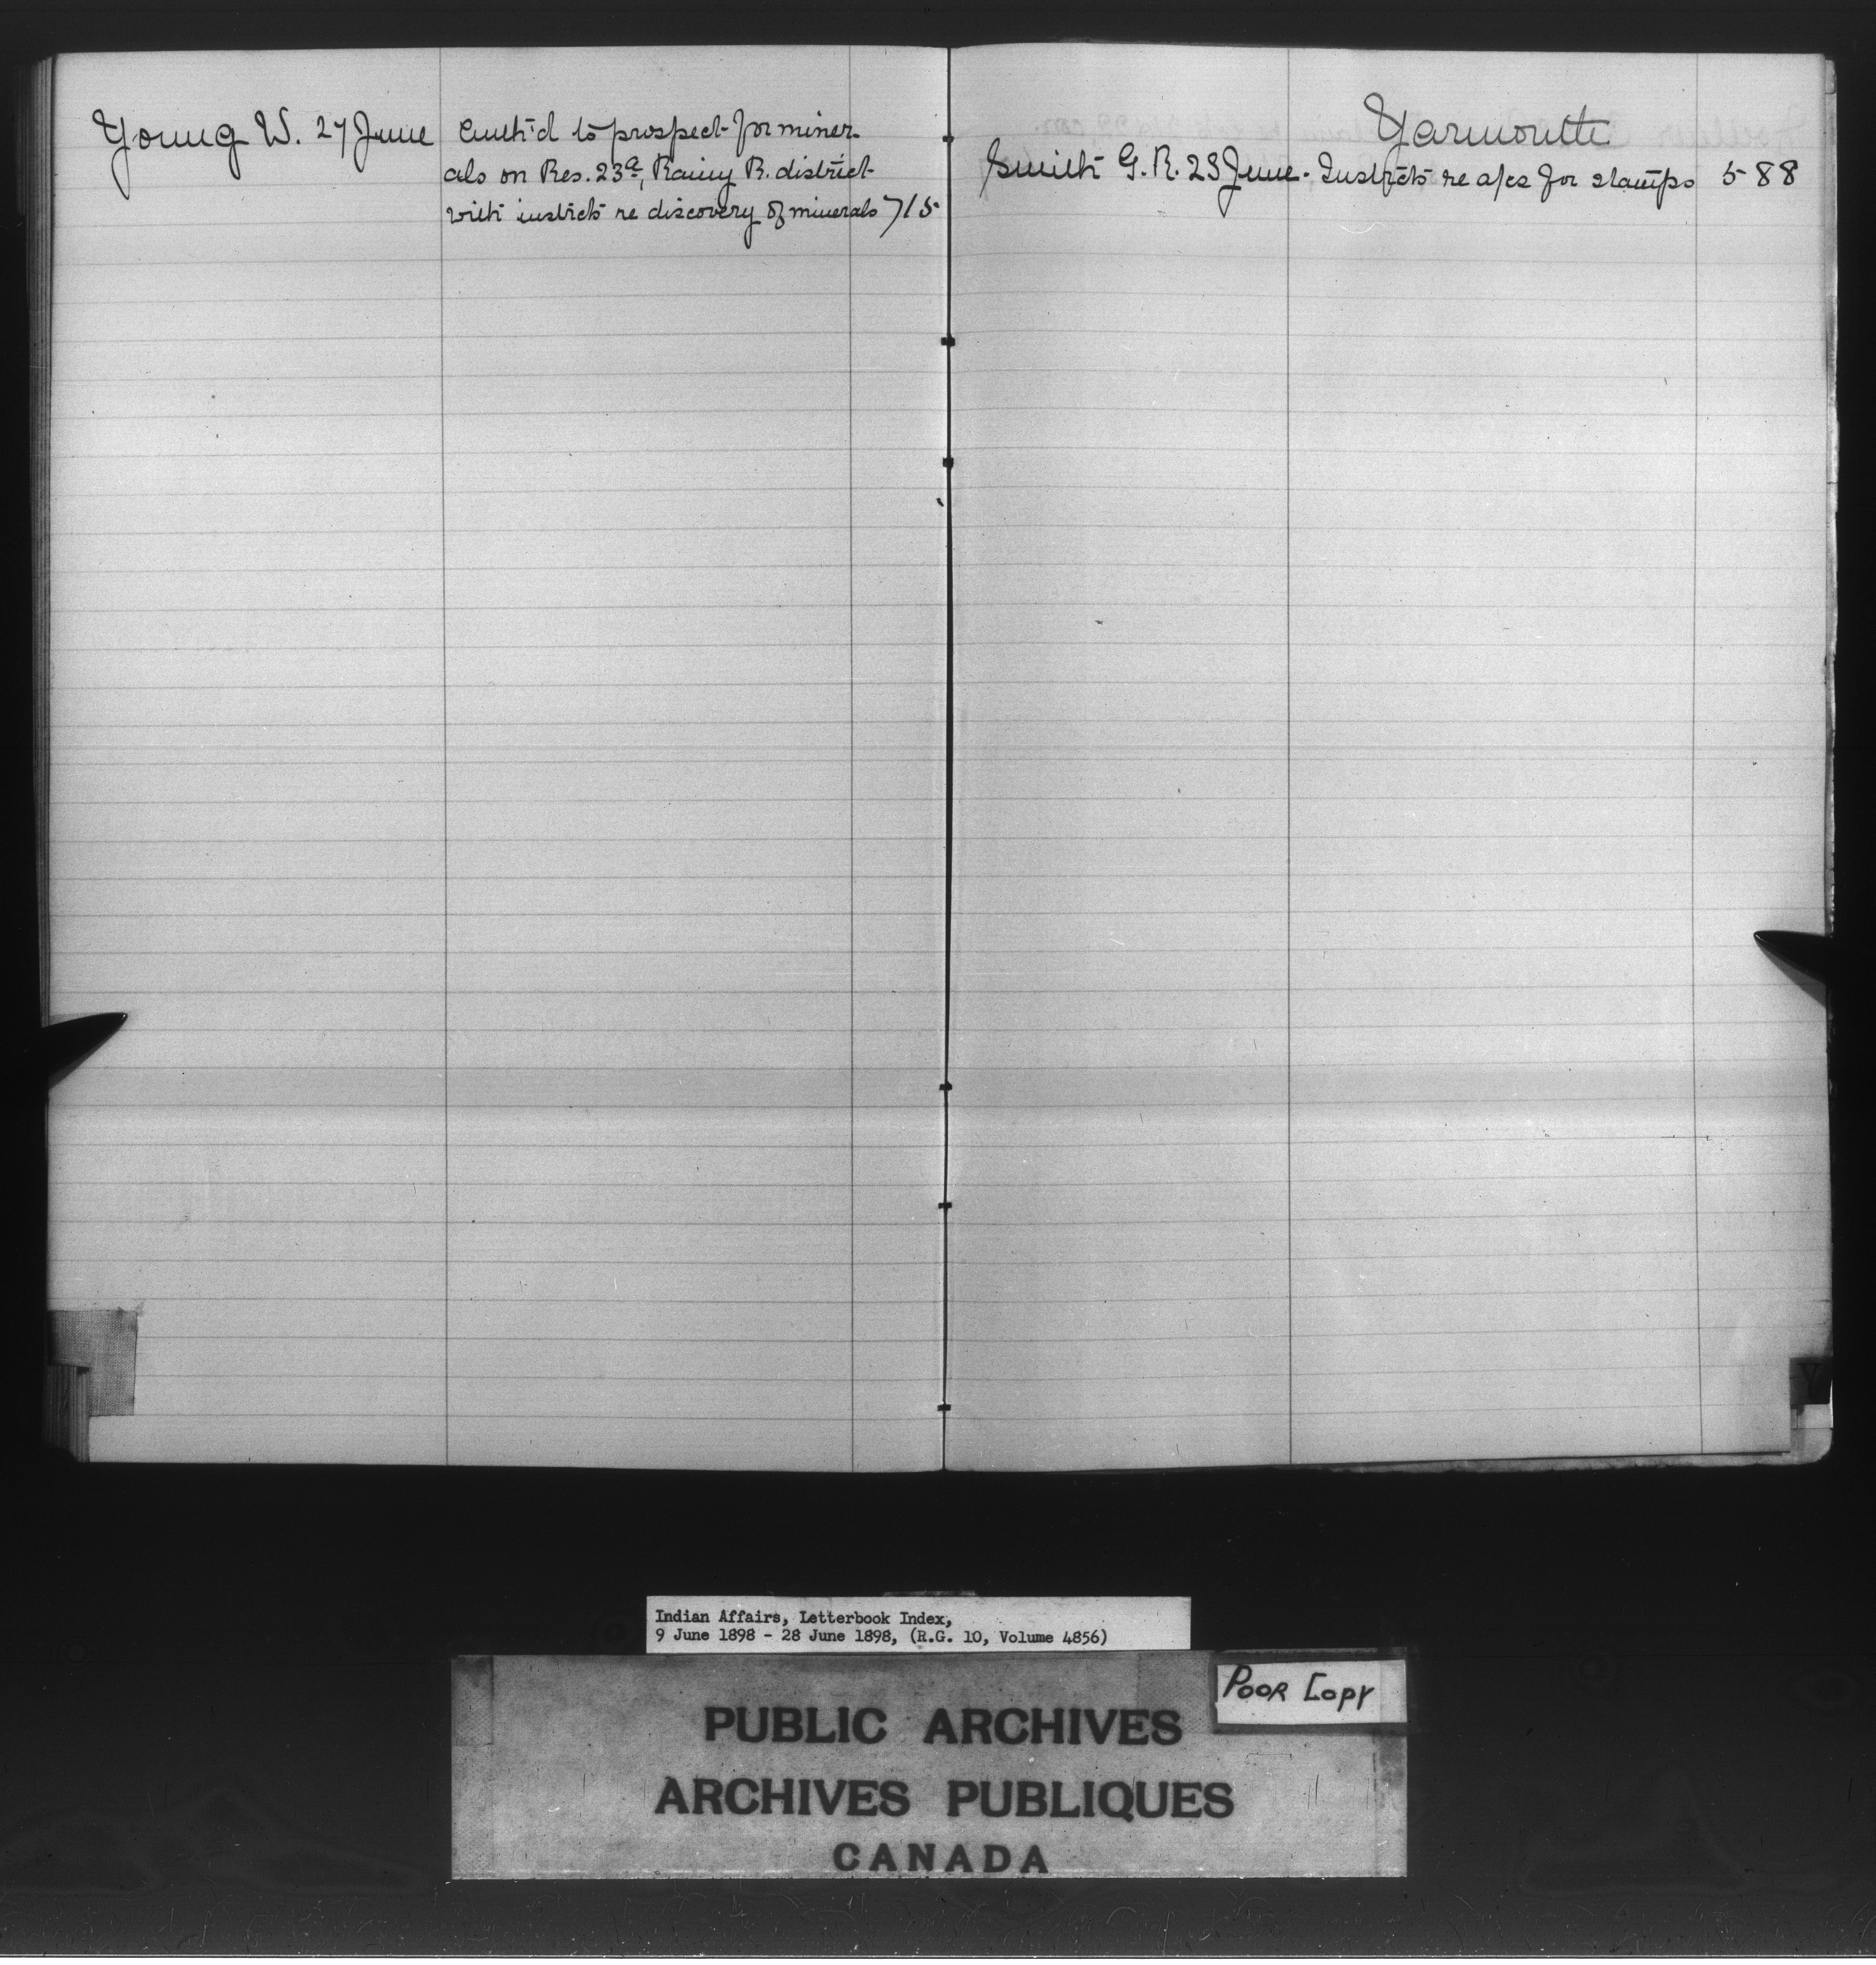 Young W. 27 June Auth'd to prospect for miner-
als on Res. 23a, Rainy R. district
with instrcts re discovery of minerals 715
Yarmouth
Smith G. R. 23 June. Instrcts re a/cs for stamps 588
Y
Indian Affairs, Letterbook Index,
9 June 1898 - 28 June 1898, (R.G. 10, Volume 4856)
POOR COPY
PUBLIC ARCHIVES
ARCHIVES PUBLIQUES
CANADA